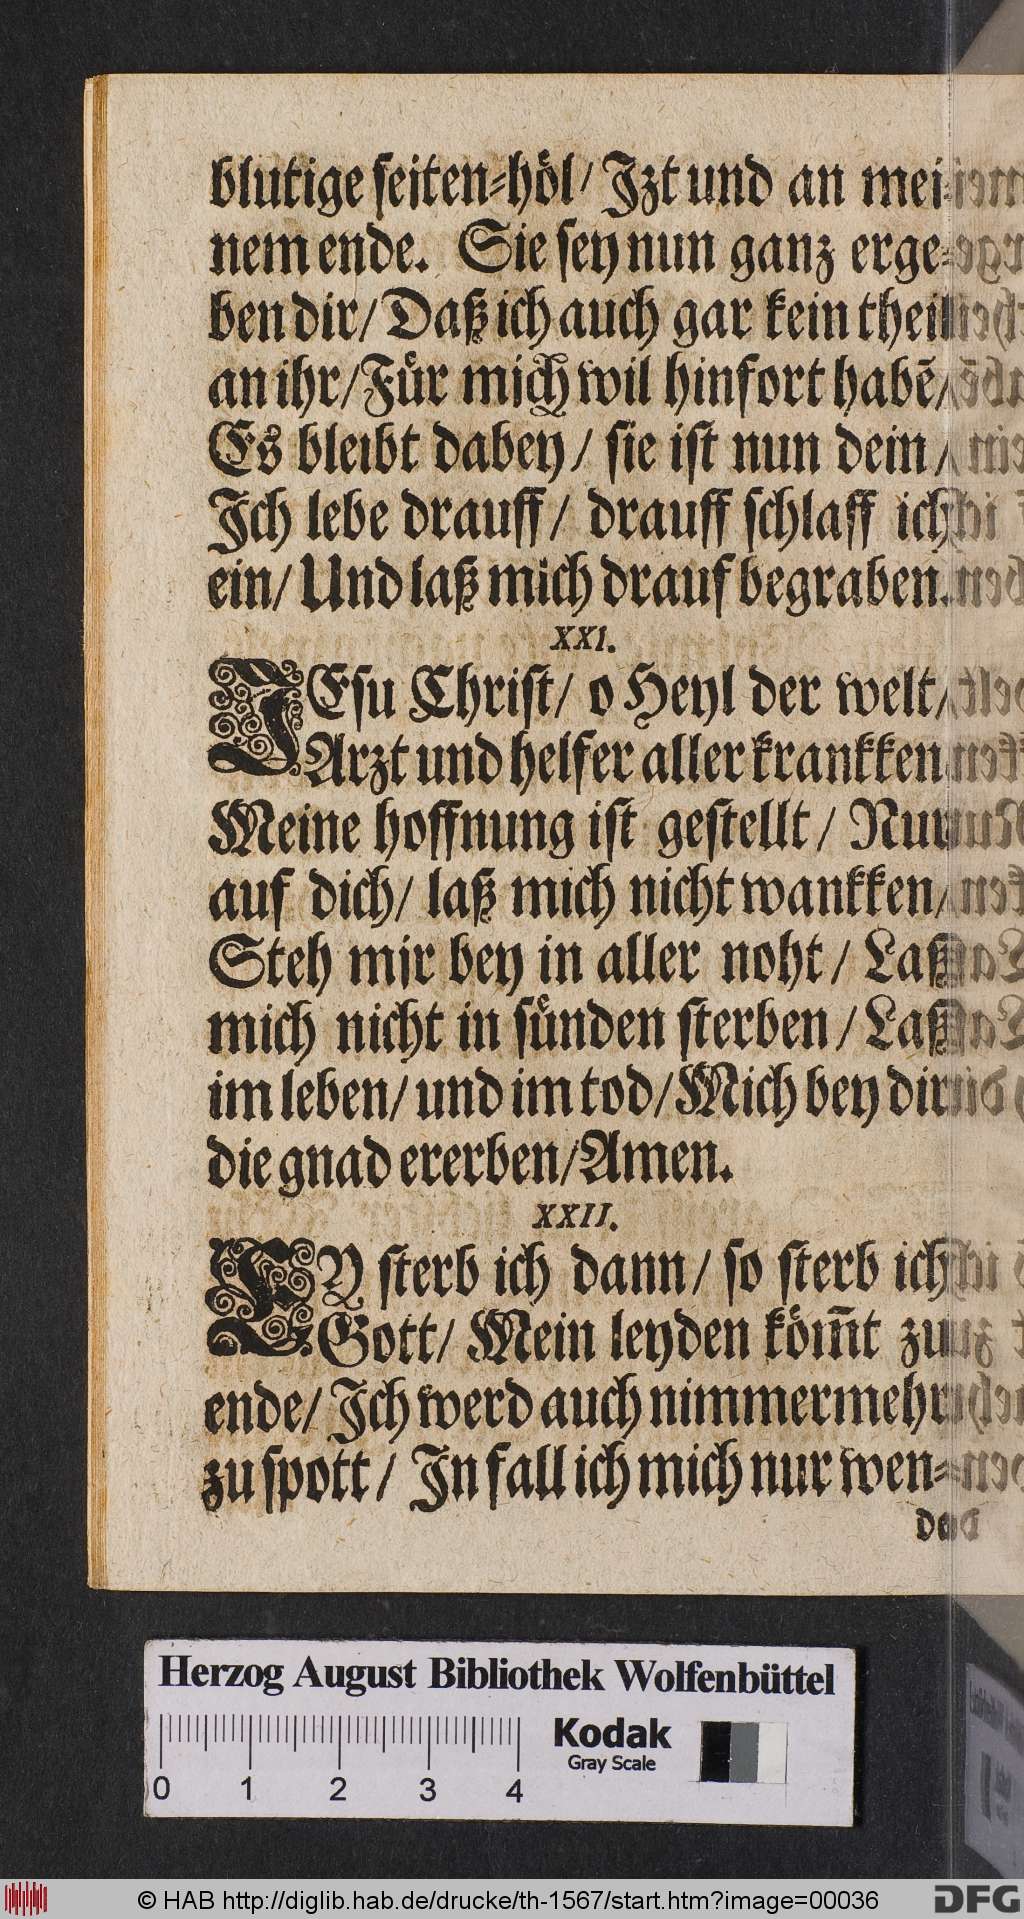 blutige seiten-höl/ Izt und an mei-
nem ende. Sie sey nun ganz erge-
ben dir/ Daß ich auch gar kein theil
an ihr/ Für mich wil hinfort habē/
Es bleibt dabey/ sie ist nun dein/
Ich lebe drauff/ drauff schlaff ich
ein/ Und laß mich drauf begraben.
XXI.
JEsu Christ/ o Heyl der welt/
Arzt und helfer aller krankken
Meine hoffnung ist gestellt/ Nur
auf dich/ laß mich nicht wankken/
Steh mir bey in aller noht/ Laß
mich nicht in sünden sterben/ Laß
im leben/ und im tod/ Mich bey dir
die gnad ererben/ Amen.
XXII.
EY sterb ich dann/ so sterb ich
Gott/ Mein leyden köm̄t zu
ende/ Ich werd auch nimmermehr
zu spott/ In fall ich mich nur wen-
Herzog August Bibliothek Wolfenbüttel
Kodak
Gray Scale
0 1 2 3 4
© HAB http://diglib.hab.de/drucke/th-1567/start.htm?image=00036
DFG